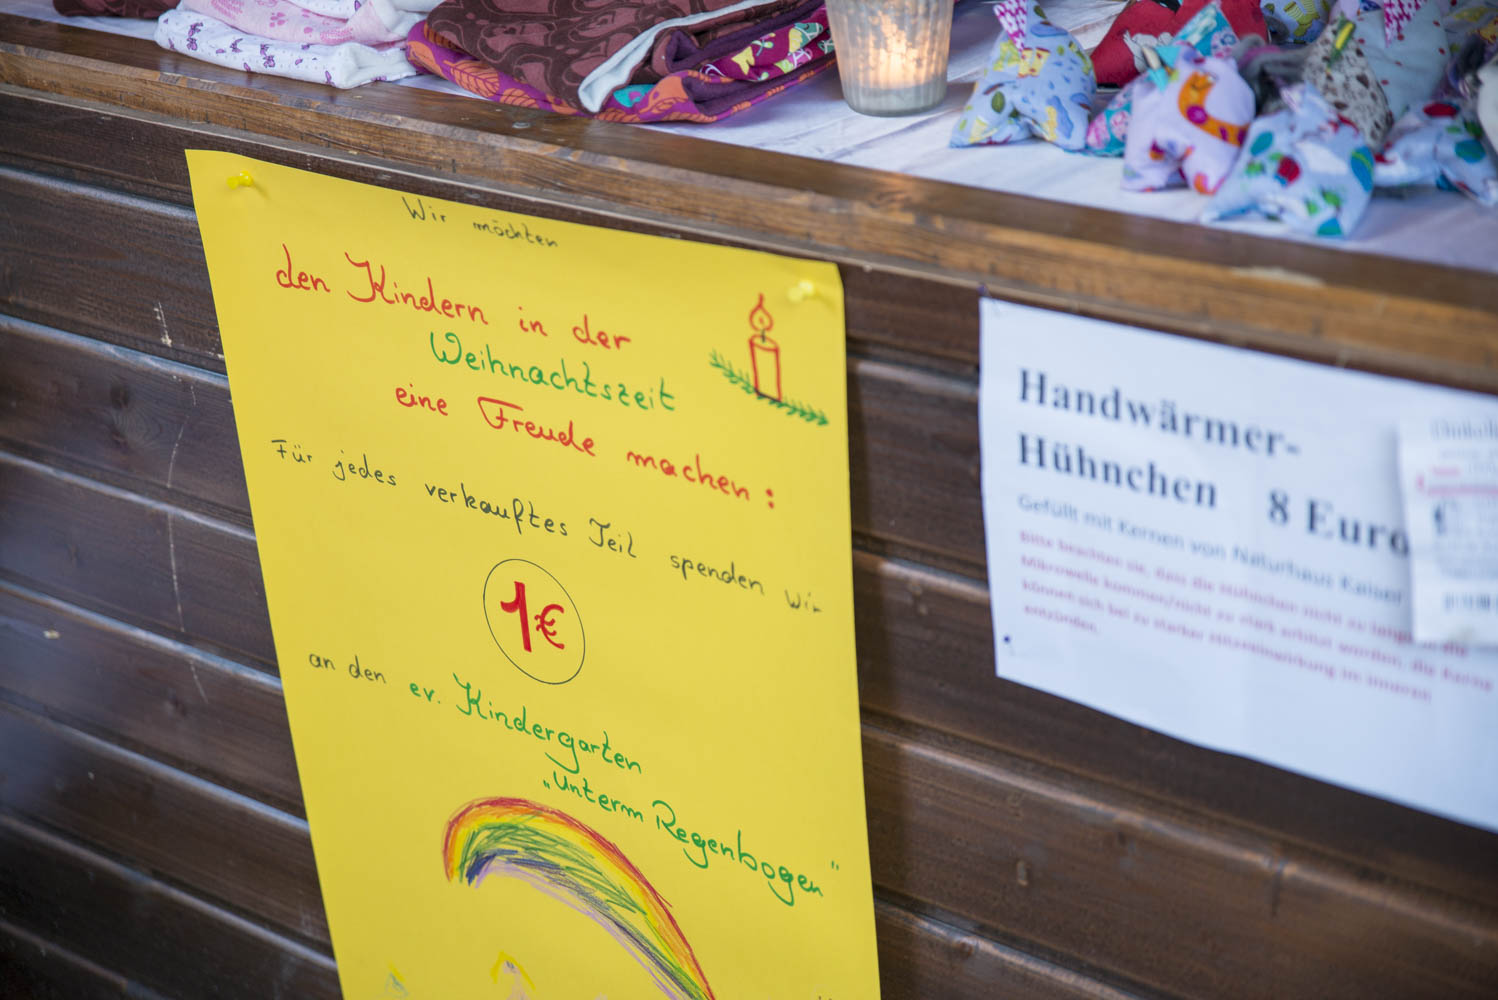 Wir möchten
den Kindern in der
Weihnachtszeit
eine Freude machen:
Für jedes verkauftes Teil spenden wir
1€
an den ev. Kindergarten
„Unterm Regenbogen"
Handwärmer-
Hühnchen 8 Euro
Gefüllt mit Kernen von Naturhaus Kaiser
Bitte beachten sie, dass die Hühnchen nicht zu lange in die
Mikrowelle kommen/nicht zu stark erhitzt werden, die Kerne
können sich bei zu starker Hitzeeinwirkung im Inneren
entzünden.